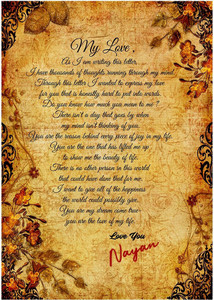 My Love,
As I am writing this letter,
I have thousands of thoughts running through my mind.
Through this letter I wanted to express my love
for you that is honestly hard to put into words.
Do you know how much you mean to me?
There isn't a day that goes by when
my mind isn't thinking of you.
You are the reason behind every piece of joy in my life.
You are the one that has lifted me up
to show me the beauty of life.
There is no other person in this world
that could have done that for me.
I want to give all of the happiness
the world could possibly give.
You are my dream come true
you are the love of my life.
Love You
Nayan